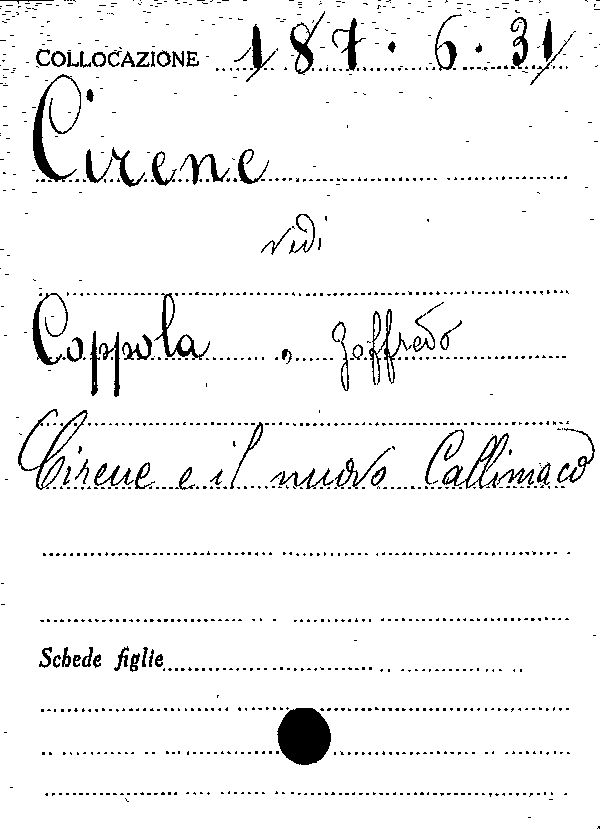 COLLOCAZIONE 187.6.31
Cirene
vedi
Coppola, Goffredo
Cirene e il nuovo Callimaco
Schede figlie